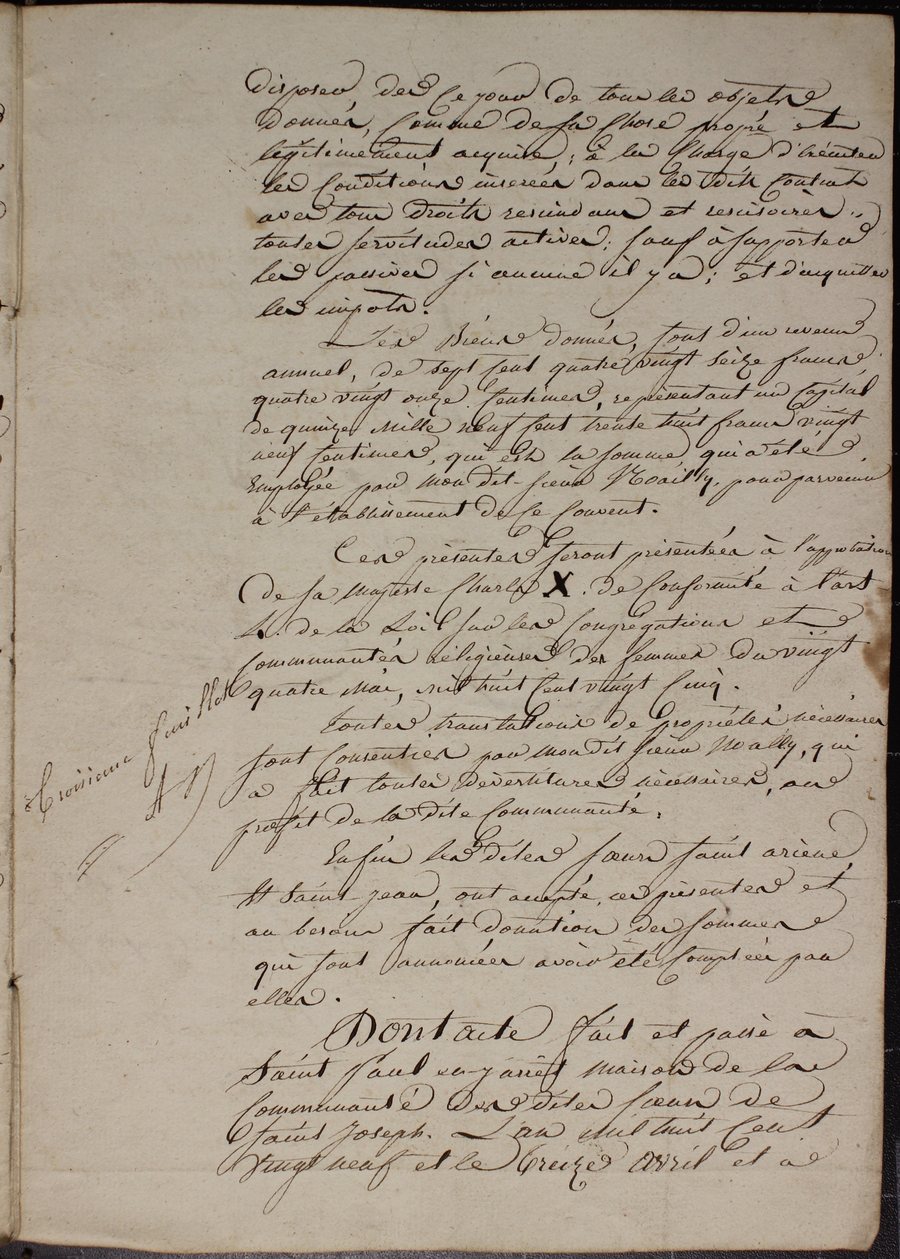 disposer des Ce jour de tous les objets
donnés, Comme de sa Chose propre et
légitimement acquise ; à la Charge d'exécuter
les Conditions inserées dans les dits Contrats
avec tous droits rescindans et rescisoires,
toutes servitudes actives ; sauf à supporter
les passives si aucune il y a ; et d'acquitter
les impots.
Les Biens donnés, sont d'un revenu
annuel, de sept Cent quatre vingt seize francs
quatre vingt onze Centimes, représentant un Capital
de quinze Mille Neuf Cent trente huit francs vingt
neuf Centimes, qui est la somme qui a été
Employée par mon dit-sieur Noailly, pour parvenir
à l'établissement de Ce Couvent.
Ces présentes seront présentées à l'approbation
de sa Majesté Charles X. de Conformité à l'art
4. de la Loi sur les Congrégations et
Communautés réligieuses des femmes du vingt
quatre Mai, mil huit Cent vingt Cinq.
Toutes translations de propriétés nécéssaires
sont Consenties par mon dit sieur Noailly, qui
a fait toutes dévestitures nécéssaires, au
profit de la dite Communauté.
Enfin les dites soeurs saint arsène
Et Saint-Jean, ont accepté ces présentes et
au besoin fait donation des sommes
qui sont annoncées avoir été Comptées par
elles.
Dont acte fait et passé à
Saint Paul en-jarrêt Maison de la
Communauté des dites soeurs de
Saint Joseph. L'an mil huit Cent
vingt neuf et le treize avril et a
troisième feuillet